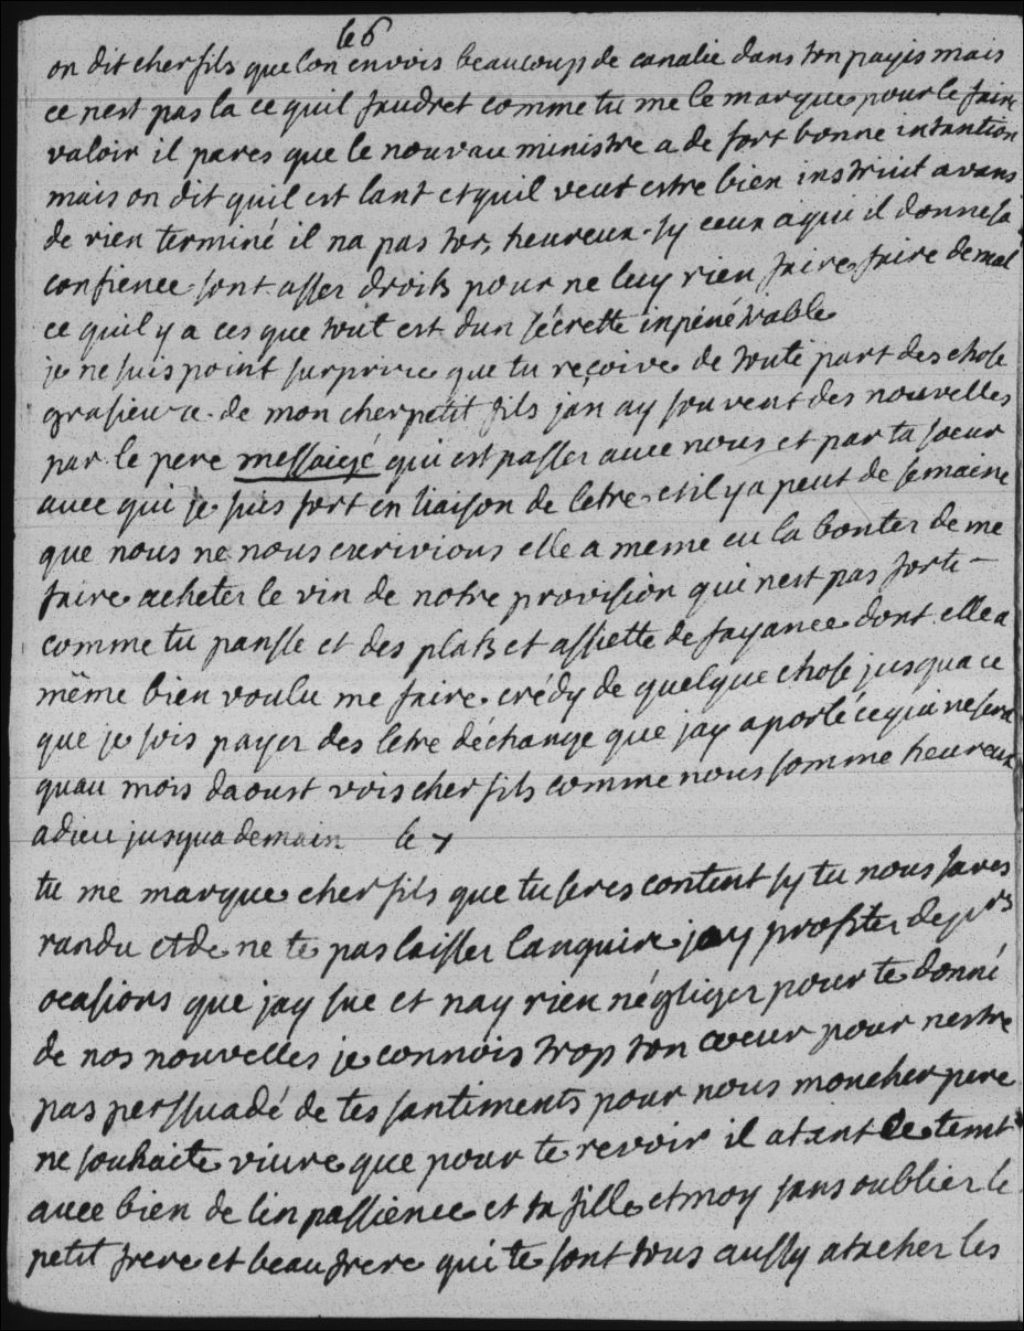 le 6
on dit cher fils que lon envois beaucoup de canalie dans ton payis mais
ce nest pas la ce quil faudret comme tu me le marque pour le faire
valoir il pares que le nouvau ministre a de fort bonne intantion
mais on dit quil est lant et quil veut estre bien instruit avans
de rien terminé il na pas tor, heureux sy ceux a qui il donne sa
confience sont asser droits pour ne luy rien faire faire de mal
ce quil y a ces que tout est dun sécrette inpénétrable
je ne suis point surprire que tu reçoive de toute part des chose
grasieuse de mon cher petit fils jan ay souvent des nouvelles
par le pere messaigé qui est passer avec nous et par ta soeur
avec qui je suis fort en liaison de letre et il y a peut de semaine
que nous ne nous crerivions elle a meme eu la bonter de me
faire acheter le vin de notre provision qui nest pas forte
comme tu pansse et des plats et assiette de fayance dont elle a
même bien voulu me faire crédy de quelque chose jusqua ce
que je sois payer des letre déchange que jay aporté ce qui ne sera
quau mois daoust vois cher fils comme nous somme heureux
adieu jusqua demain le 7
tu me marque cher fils que tu seres contint sy tu nous saves
randu et de ne te pas laisser languire jay profiter de prs
ocasions que jay sue et nay rien négliger pour te donné
de nos nouvelles je connois trop ton coeur pour nestre
pas perssuadé de tes santiments pour nous mon cher pere
ne souhaite vivre que pour te revoir il atent ce temt
avec bien de linpassience et ta fille et moy sans oublier le
petit frere et beau frere qui te sont tous aussy atacher les